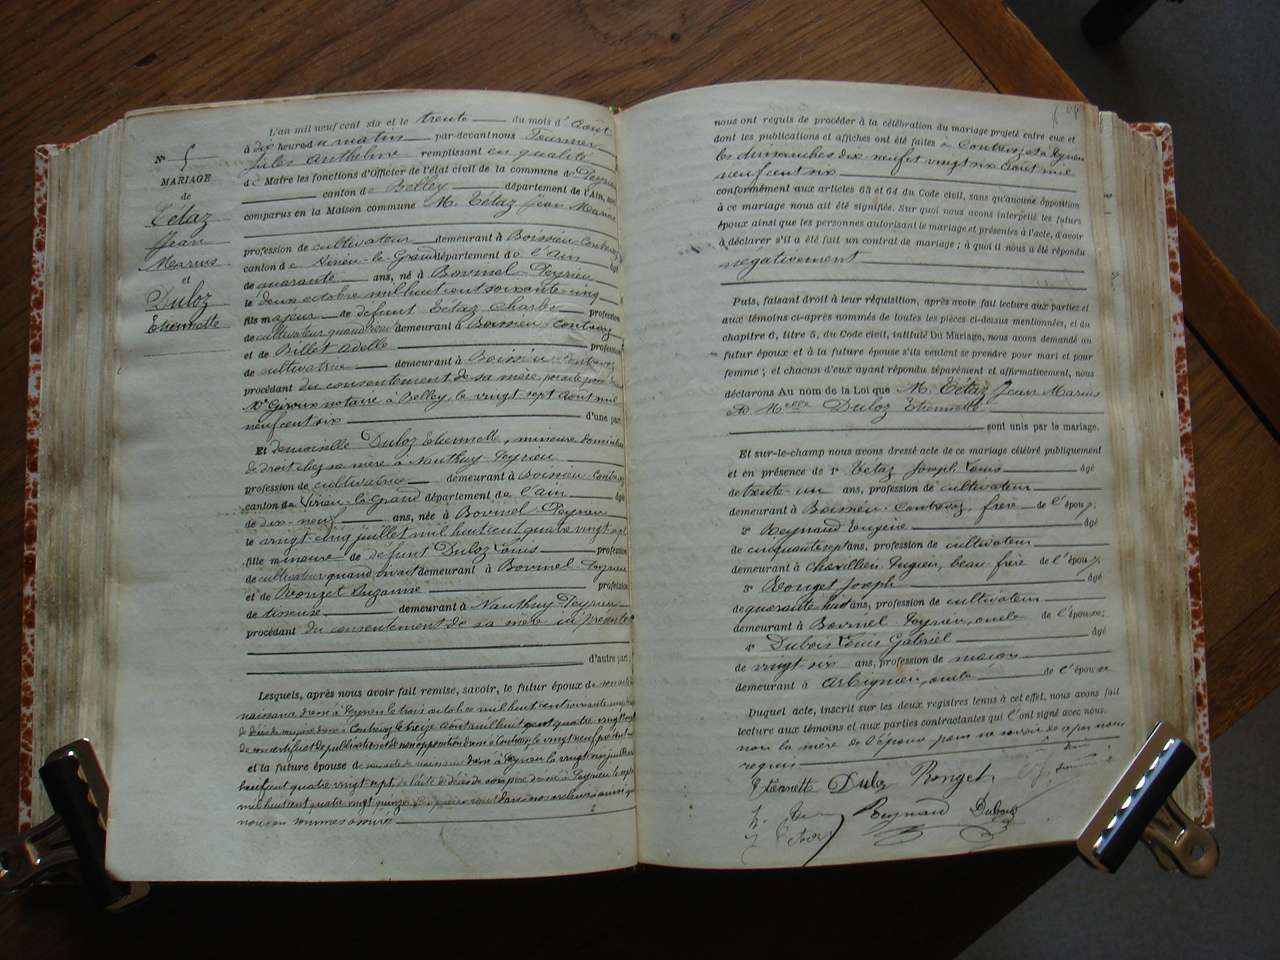 N° 5
MARIAGE
de
Tétaz
Jean
Marius
et
Duloz
Etiennette
L'an mil neuf cent six et le trente du mois d'Août
à dix heures du matin par-devant nous Fournier
Jules Anthelme remplissant en qualité
de Maire les fonctions d'Officier de l'état civil de la commune de Peyrieu
canton de Belley département de l'Ain, sont
comparus en la Maison commune M. Tétaz Jean Marius
profession de cultivateur demeurant à Boissieu-Contrevoz
canton de Virieu-le-Grand département de l'Ain âgé
de quarante ans, né à Bovinel-Peyrieu
le deux octobre mil huit cent soixante-cinq
fils majeur de défunt Tétaz Charles profession
de cultivateur quand vivait demeurant à Boissieu-Contrevoz
et de Billet Adelle profession
de cultivatrice demeurant à Boissieu-Contrevoz
procédant du consentement de sa mère, par acte passé
Mr Giroux notaire à Belley, le vingt-sept Août mil
neuf cent six d'une part;
Et demoiselle Duloz Etiennette, mineure domiciliée
de droit chez sa mère à Nanthuy-Peyrieu
profession de cultivatrice demeurant à Boissieu-Contrevoz
canton de Virieu-le-Grand département de l'Ain âgé
de dix-neuf ans, née à Bovinel Peyrieu
le vingt-cinq juillet mil huit cent quatre vingt sept
fille mineure de défunt Duloz Louis profession
de cultivateur quand vivait demeurant à Bovinel Peyrieu
et de Ronget Suzanne profession
de tisseuse demeurant à Nanthuy-Peyrieu
procédant du consentement de sa mère ici présente
d'autre part;
Lesquels, après nous avoir fait remise, savoir, le futur époux de son acte de
naissance dressé à Peyrieu le trois octobre mil huit cent soixante cinq
de décès de son père dressé à Contrevoz le treize Août mil huit cent quatre-vingt
de son certificat de publication et de non opposition dressé à Contrevoz le vingt neuf
et la future épouse de son acte de naissance dressé à Peyrieu le vingt six juillet mil
huit cent quatre vingt-sept, de l'acte de décès de son père dressé à Peyrieu le sept
mil huit cent quatre-vingt quinze dans nos archives ainsi que
nous nous en sommes assuré
nous ont requis de procéder à la célébration du mariage projeté entre eux et
dont les publications et affiches ont été faites à Contrevoz et à Peyrieu
les dimanches dix neuf et vingt six Août mil
neuf cent six
conformément aux articles 63 et 64 du Code civil, sans qu'aucune opposition
à ce mariage nous ait été signifiée. Sur quoi nous avons interpellé les futurs
époux ainsi que les personnes autorisant le mariage et présentes à l'acte, d'avoir
à déclarer s'il a été fait un contrat de mariage; à quoi il nous a été répondu
négativement
Puis, faisant droit à leur réquisition, après avoir fait lecture aux parties et
aux témoins ci-après nommés de toutes les pièces ci-dessus mentionnées, et du
chapitre 6, titre 5, du Code civil, intitulé Du Mariage, nous avons demandé au
futur époux et à la future épouse s'ils veulent se prendre pour mari et pour
femme; et chacun d'eux ayant répondu séparément et affirmativement, nous
déclarons Au nom de la Loi que M. Tétaz Jean Marius
et Melle Duloz Etiennette
sont unis par le mariage.
Et sur-le-champ nous avons dressé acte de ce mariage célébré publiquement
et en présence de 1° Tétaz Joseph Louis âgé
de trente-un ans, profession de cultivateur
demeurant à Boissieu-Contrevoz, frère de l'époux;
2° Reynaud Eugène âgé
de cinquante sept ans, profession de cultivateur
demeurant à Chevillieu Pugieu, beau frère de l'époux;
3° Ronget Joseph âgé
de quarante huit ans, profession de cultivateur
demeurant à Bovinel-Peyrieu, oncle de l'épouse;
4° Dubois Louis Gabriel âgé
de vingt six ans, profession de maçon
demeurant à Arbignieu, oncle de l'épouse
Duquel acte, inscrit sur les deux registres tenus à cet effet, nous avons fait
lecture aux témoins et aux parties contractantes qui l'ont signé avec nous,
non la mère de l'épouse pour ne savoir de ce par nous
requis
Etiennette Duloz Ronget
Reynaud Dubois